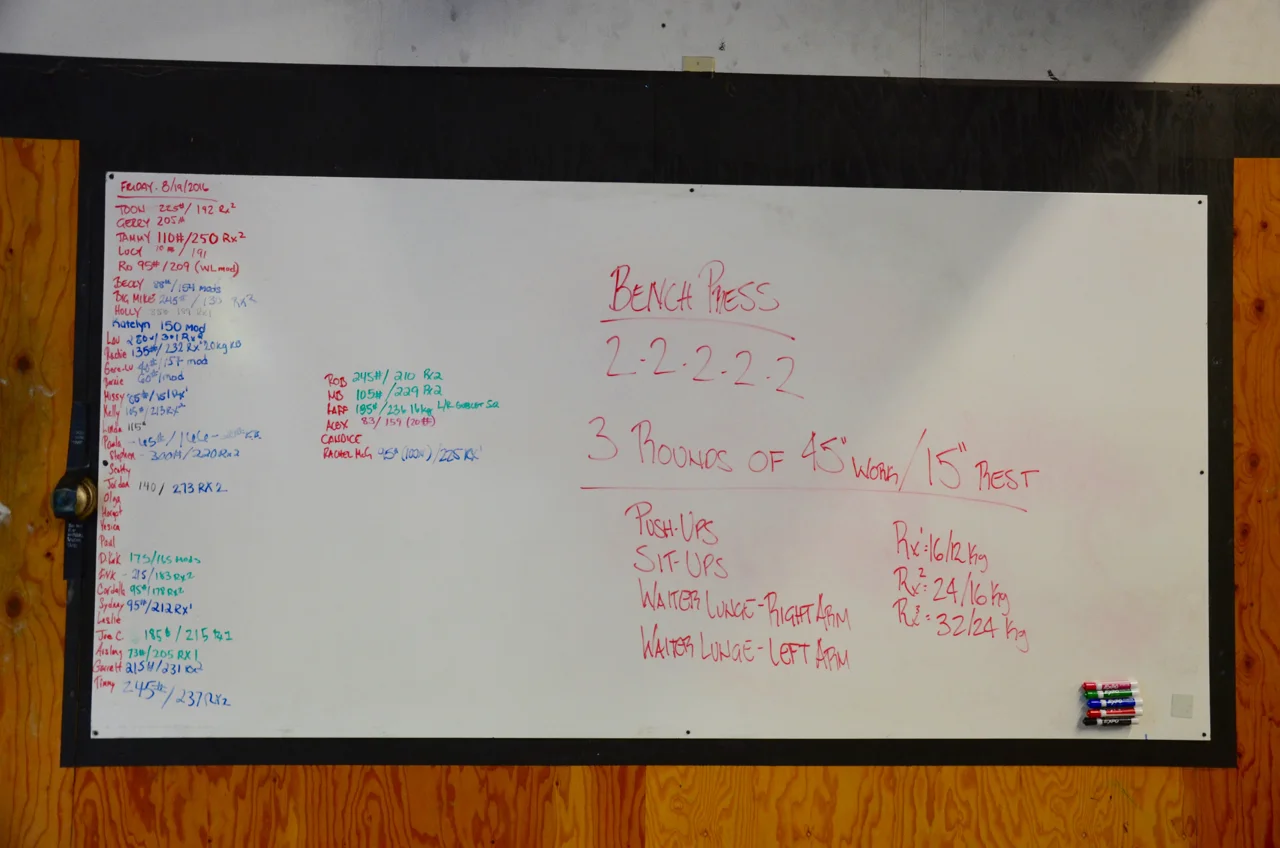 FRIDAY - 8/19/2016
TOON 225#/ 192 Rx2
GERRY 205#
TAMMY 110#/250 Rx2
LUCY / 191
Ro 95#/209 (WL mod)
BECCY mods
BIG MIKE 245# / 130 Rx2
HOLLY
Katelyn 150 mod
Lou Rx2
135#/232 Rx' 20kg KB
/157 mod
60#/mod
Missy Rx'
Kelly 115#/213 Rx2
Linda 115#
Paula - 65#/166 -
Stephen - 300#/220 Rx2
Scotty
Jordan 140/ 273 RX2
Olga
Margot
Yesica
Paul
D. Kek 175/165 mods
Erik - 215/183 Rx2
95#/178 Rx2
Sydney 95#/212 Rx'
Leslie
Joe C. 185#/215
Ansley 73#/205 RX1
Garrett 215#/231 Rx2
Timmy 245#/237 Rx2
ROB 245#/ 210 Rx2
MB 105#/229 Rx2
RAFF 185#/236 16kg L/R GOBLET SQ
ALEX 83/ 159 (20#)
CANDICE
RACHEL McG 95# (100#)/225 RX'
BENCH PRESS
2-2-2-2-2
3 ROUNDS OF 45" WORK/15" REST
PUSH-UPS
SIT-UPS
WAITER LUNGE-RIGHT ARM
WAITER LUNGE-LEFT ARM
Rx'=16/12 Kg
Rx2=24/16 Kg
Rx3=32/24 Kg